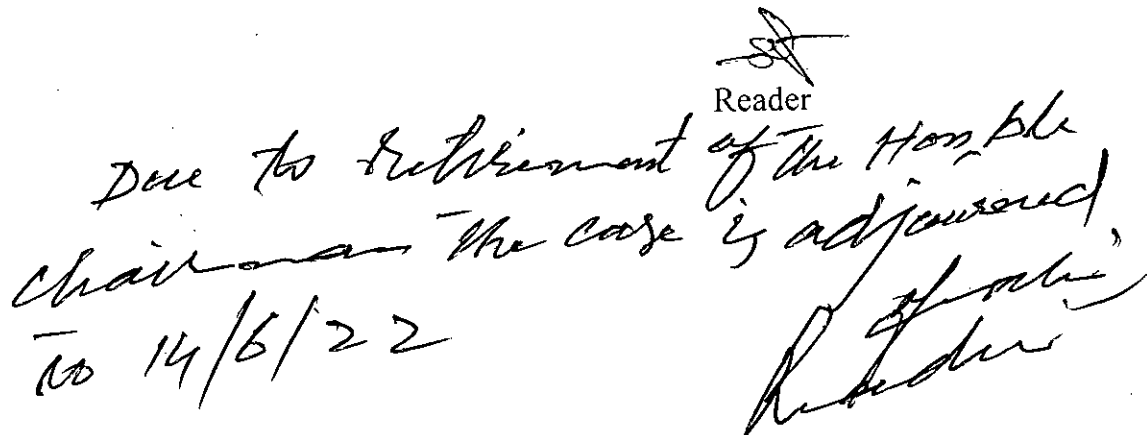 Reader
Due to retirement of the Hon,ble
chairman the case is adjourned
to 14/6/22
Reader